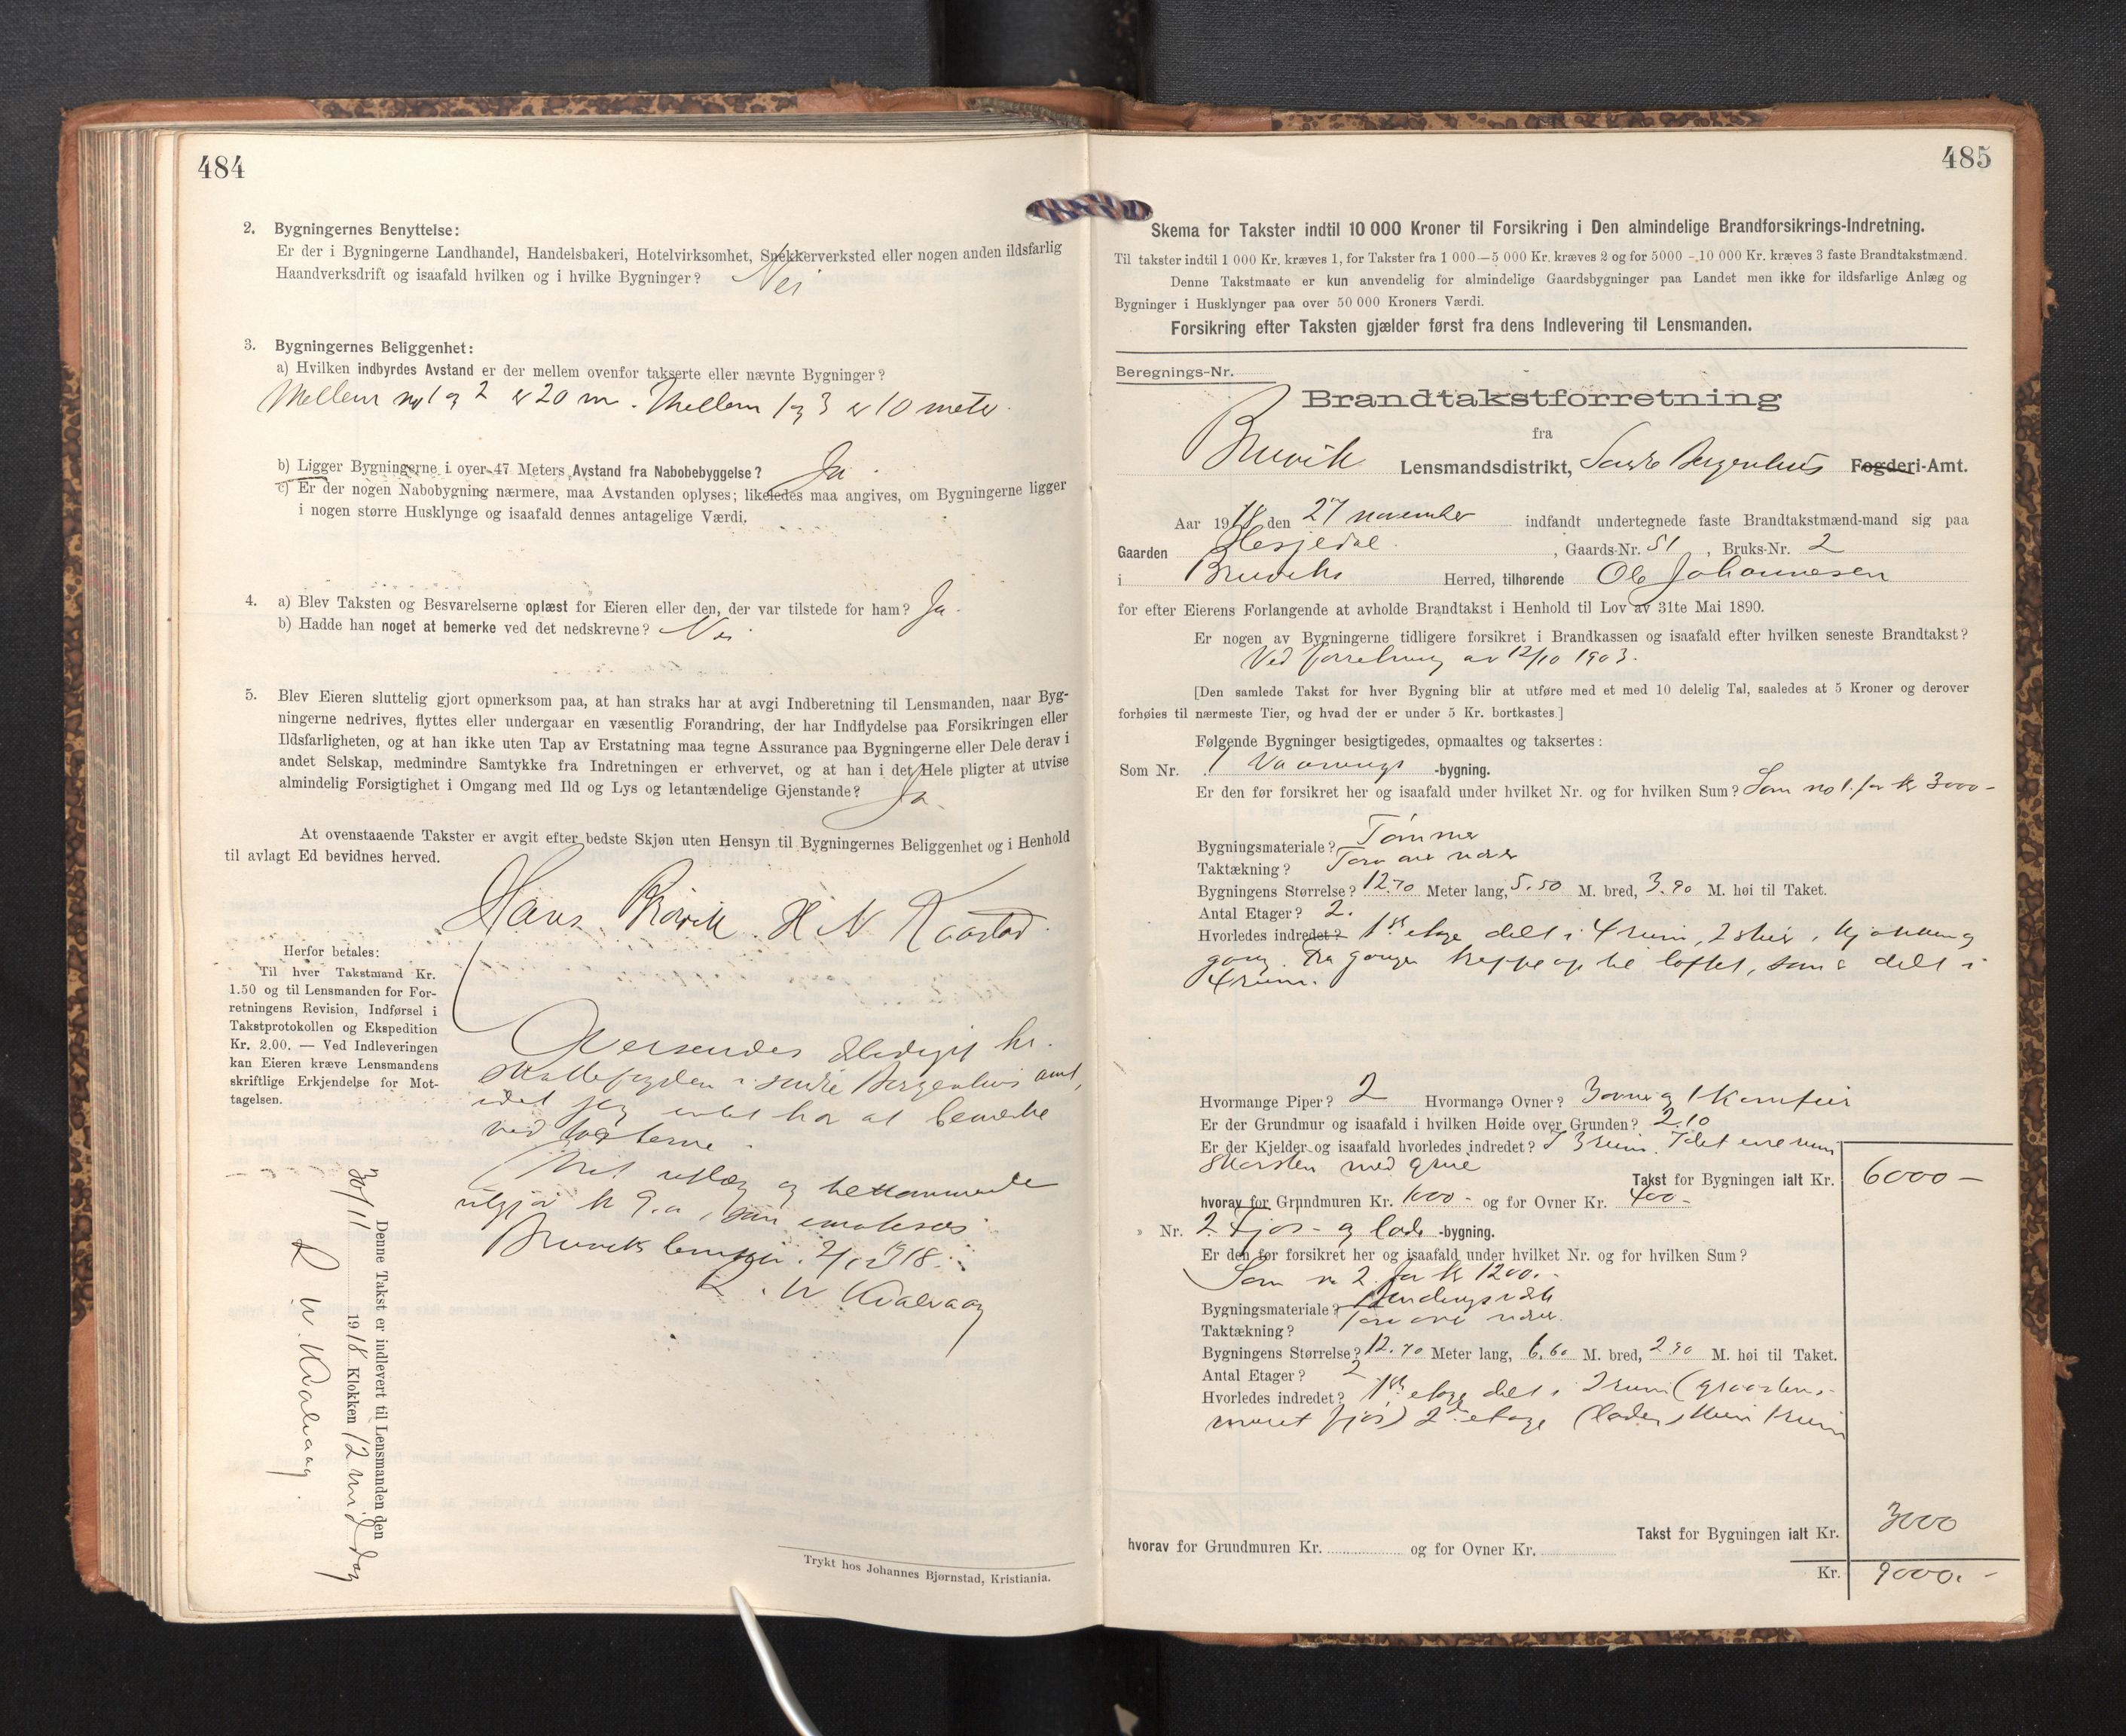 484
2. Bygningernes Benyttelse:
Er der i Bygningerne Landhandel, Handelsbakeri, Hotelvirksomhet, Snekkerverksted eller nogen anden ildsfarlig
Haandverksdrift og isaafald hvilken og i hvilke Bygninger? Nei
3. Bygningernes Beliggenhet:
a) Hvilken indbyrdes Avstand er der mellem ovenfor takserte eller nævnte Bygninger?
Mellem no 1 og 2 er 20 m. Mellem 1 og 3 er 10 meter.
b) Ligger Bygningerne i over 47 Meters Avstand fra Nabobebyggelse? Ja.
c) Er der nogen Nabobygning nærmere, maa Avstanden oplyses; likeledes maa angives, om Bygningerne ligger
i nogen større Husklynge og isaafald dennes antagelige Værdi.
4. a) Blev Taksten og Besvarelserne oplæst for Eieren eller den, der var tilstede for ham? Ja.
b) Hadde han noget at bemerke ved det nedskrevne? Nei
5. Blev Eieren sluttelig gjort opmerksom paa, at han straks har at avgi Indberetning til Lensmanden, naar Byg-
ningerne nedrives, flyttes eller undergaar en væsentlig Forandring, der har Indflydelse paa Forsikringen eller
Ildsfarligheten, og at han ikke uten Tap av Erstatning maa tegne Assurance paa Bygningerne eller Dele derav i
andet Selskap, medmindre Samtykke fra Indretningen er erhvervet, og at han i det Hele pligter at utvise
almindelig Forsigtighet i Omgang med Ild og Lys og letantændelige Gjenstande? Ja.
At ovenstaaende Takster er avgit efter bedste Skjøn uten Hensyn til Bygningernes Beliggenhet og i Henhold
til avlagt Ed bevidnes herved.
Hans H N
Herfor betales:
Til hver Takstmand Kr.
1.50 og til Lensmanden for For-
retningens Revision, Indførsel i
Takstprotokollen og Ekspedition
Kr. 2.00. — Ved Indleveringen
kan Eieren kræve Lensmandens
skriftlige Erkjendelse for Mot-
tagelsen.
Oversendes hr.
Skattefogden i søndre Bergenhus amt,
idet jeg intet har at bemerke
ved taksterne.
Mit utlæg og tilkommende
utgjør kr 9.00, som
Bruvik 2/12 1918.
L. W Kvalvaag
Denne Takst er indlevert til Lensmanden den
30/11 1918 Klokken 12 middag
L W. Kvalvaag
Trykt hos Johannes Bjørnstad, Kristiania.
485
Skema for Takster indtil 10 000 Kroner til Forsikring i Den almindelige Brandforsikrings-Indretning.
Til takster indtil 1 000 Kr. kræves 1, for Takster fra 1 000—5 000 Kr. kræves 2 og for 5000 -10 000 Kr. kræves 3 faste Brandtakstmænd.
Denne Takstmaate er kun anvendelig for almindelige Gaardsbygninger paa Landet men ikke for ildsfarlige Anlæg og
Bygninger i Husklynger paa over 50 000 Kroners Værdi.
Forsikring efter Taksten gjælder først fra dens Indlevering til Lensmanden.
Beregnings-Nr.
Brandtakstforretning
fra
Bruvik Lensmandsdistrikt, Søndre Bergenhus Fogderi-Amt.
Aar 1918 den 27 november indfandt undertegnede faste Brandtakstmænd-mand sig paa
Gaarden Hesjedal, Gaards-Nr. 51, Bruks-Nr. 2
i Bruviks Herred, tilhørende Ole Johannesen
for efter Eierens Forlangende at avholde Brandtakst i Henhold til Lov av 31te Mai 1890.
Er nogen av Bygningerne tidligere forsikret i Brandkassen og isaafald efter hvilken seneste Brandtakst?
Ved forretning av 12/10 1903.
[Den samlede Takst for hver Bygning blir at utføre med et med 10 delelig Tal, saaledes at 5 Kroner og derover
forhøies til nærmeste Tier, og hvad der er under 5 Kr. bortkastes.]
Følgende Bygninger besigtigedes, opmaaltes og taksertes:
Som Nr. 1 Vaanings -bygning.
Er den før forsikret her og isaafald under hvilket Nr. og for hvilken Sum? Som no 1. for kr 3000-
Bygningsmateriale? Tømmer
Taktækning? Torv over næver
Bygningens Størrelse? 12.70 Meter lang, 5.50 M. bred, 3.90 M. høi til Taket.
Antal Etager? 2.
Hvorledes indredet? 1ste etage delt i 4 rum, 2 stuer, kjøkken og
gang. Fra gangen trappe op til loftet, som er delt i
4 rum.
Hvormange Piper? 2 Hvormange Ovner? 3 ovne og 1 komfur
Er der Grundmur og isaafald i hvilken Høide over Grunden? 2.10
Er der Kjelder og isaafald hvorledes indredet? I 3 rum. I det ene rum
skorsten med grue
Takst for Bygningen ialt Kr. 6000 –
hvorav for Grundmuren Kr. 1000 - og for Ovner Kr. 400 -
» Nr. 2. Fjøs- og lade -bygning.
Er den før forsikret her og isaafald under hvilket Nr. og for hvilken Sum?
Som no 2 for kr 1200.-
Bygningsmateriale? Bindingsverk
Taktækning? Torv over næver.
Bygningens Størrelse? 12.70 Meter lang, 6.60 M. bred, 2.90 M. høi til Taket.
Antal Etager? 2
Hvorledes indredet? 1ste etage delt i 2 rum (graastens-
muret fjøs) 2den etage (laden) kun 1 rum
Takst for Bygningen ialt Kr. 3000
hvorav for Grundmuren Kr. og for Ovner Kr.
Kr. 9000.-